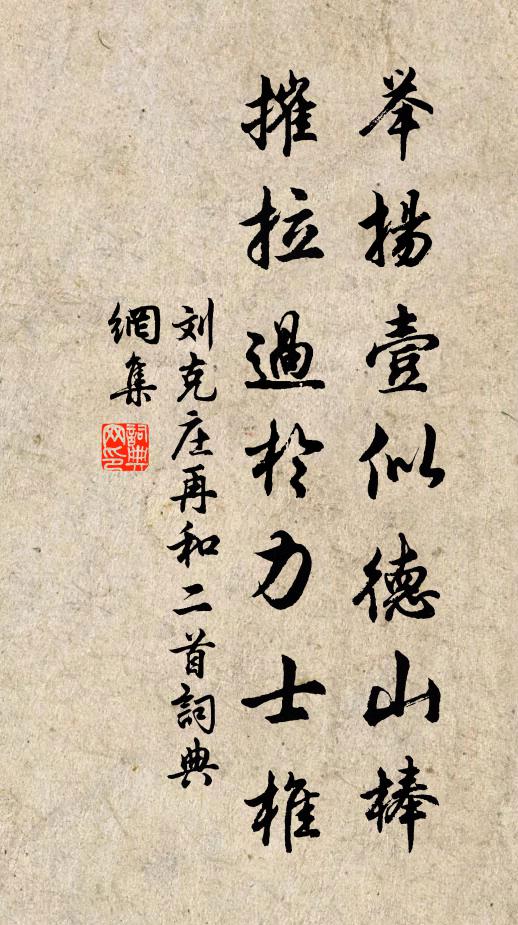 举扬壹似德山棒
摧拉過於力士椎
刘克庄再和二首詞典
網集
詞典
网印